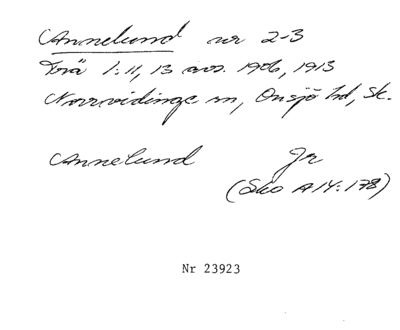 Annelund nr 2-3
Trä 1:11, 13 avs. 1906, 1913
Norrvidinge sn, Onsjö hd, Sk.
Annelund Jr
(Sko A14:178)
Nr 23923